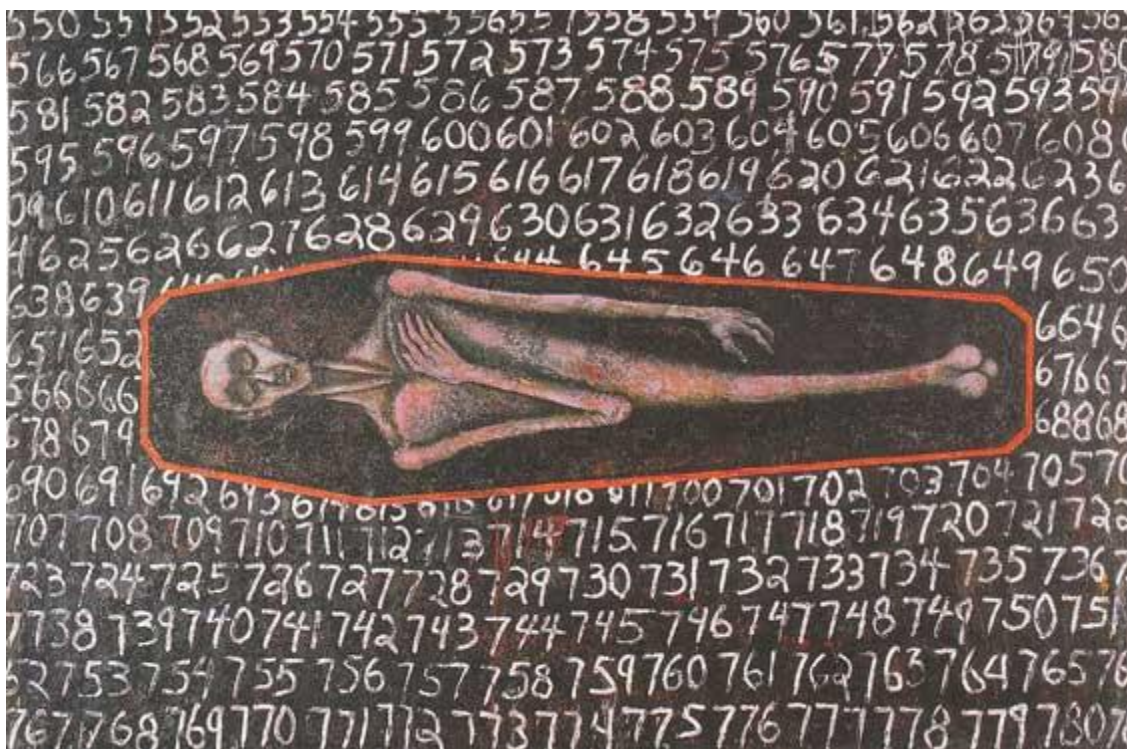 550 551 552 553 554 555 556 557 558 559 560 561 562 563 564 565
566 567 568 569 570 571 572 573 574 575 576 577 578 579 580
581 582 583 584 585 586 587 588 589 590 591 592 593 594
595 596 597 598 599 600 601 602 603 604 605 606 607 608
09 610 611 612 613 614 615 616 617 618 619 620 621 622 623 6
4 625 626 627 628 629 630 631 632 633 634 635 636 63
638 639 644 645 646 647 648 649 650
651 652 664 6
5 666 667 676 67
678 679 688 68
690 691 692 693 700 701 702 703 704 705 70
707 708 709 710 711 712 713 714 715 716 717 718 719 720 721 722
723 724 725 726 727 728 729 730 731 732 733 734 735 736 7
738 739 740 741 742 743 744 745 746 747 748 749 750 751
52 753 754 755 756 757 758 759 760 761 762 763 764 765 76
767 768 769 770 771 772 773 774 775 776 777 778 779 780 7